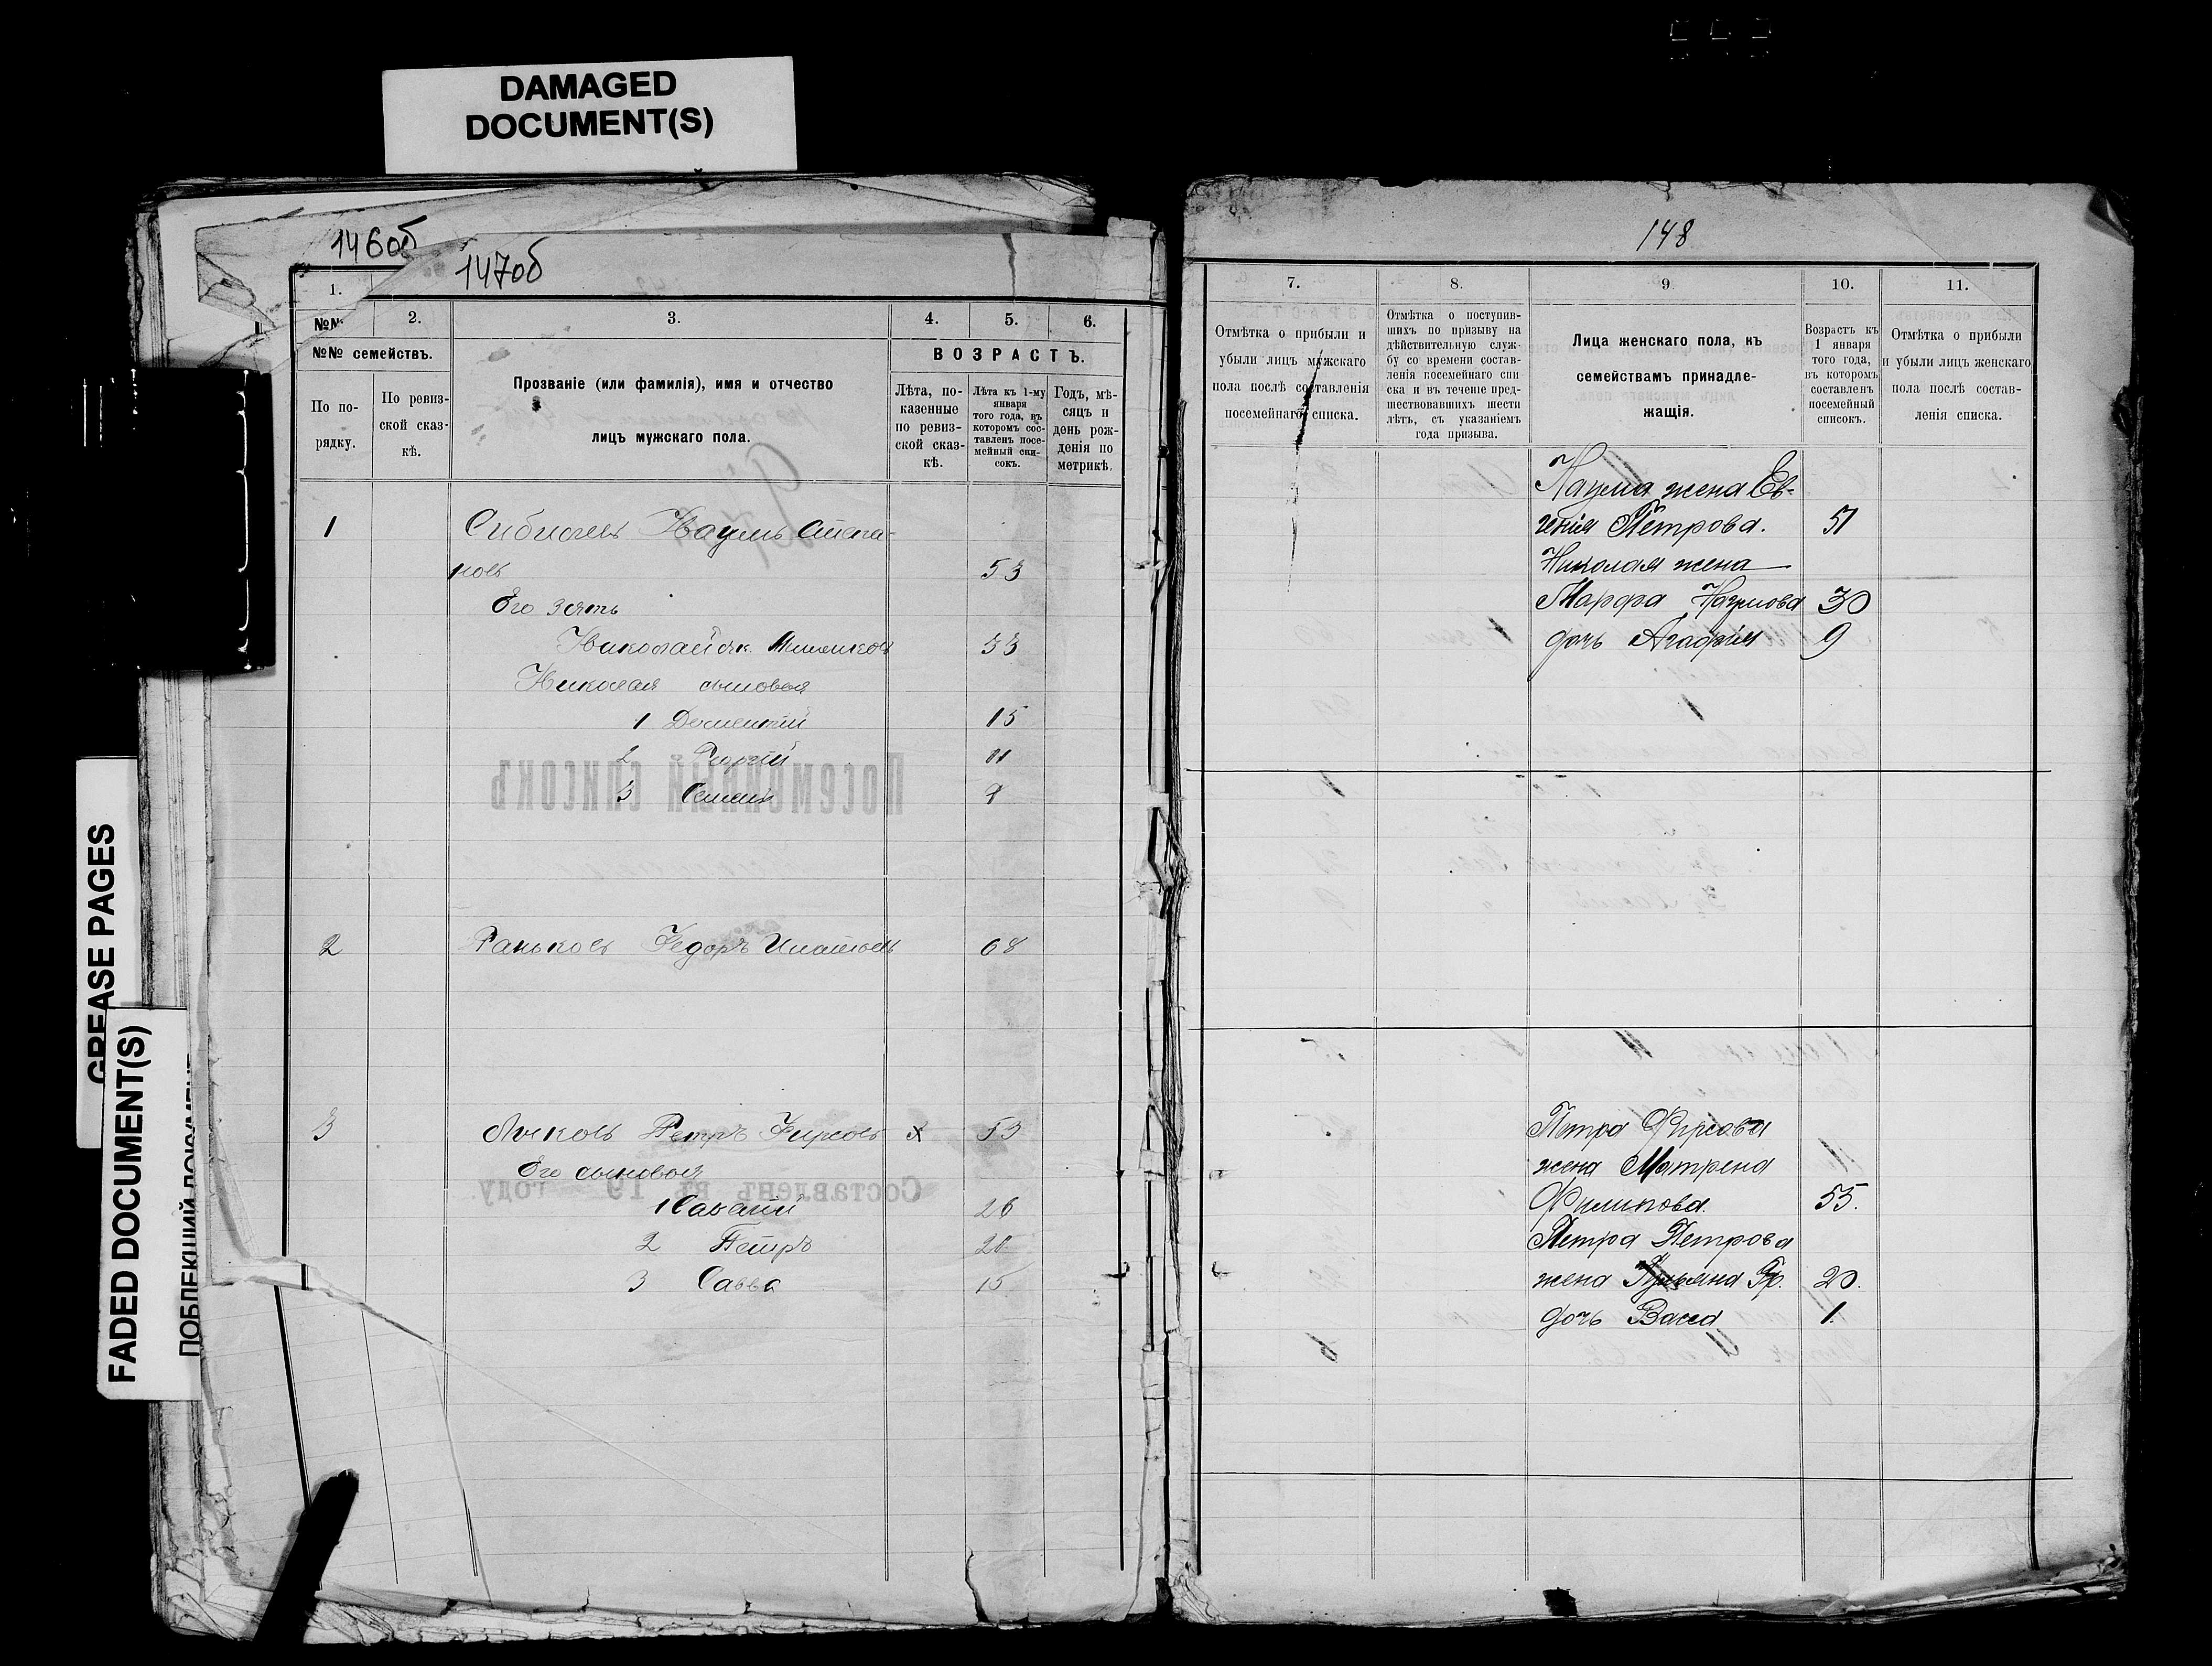 DAMAGED
DOCUMENT(S)
146об
147об
1.
№№
2.
3.
4.
5.
6.
№№ семействъ.
По по-
рядку.
По ревиз-
ской сказ-
кѣ.
Прозваніе (или фамилія), имя и отчество
лицъ мужскаго пола.
ВОЗРАСТЪ.
Лѣта, по-
казенные
по ревиз-
ской сказ-
кѣ.
Лѣта къ 1-му
января
того года, въ
которомъ сос-
тавленъ посе-
мейный спи-
сокъ.
Годъ, мѣ-
сяцъ и
день рож-
денія по
метрикѣ.
1
Наумъ
53
Его зять
Николай
33
Николая сыновья
1 Дементій 15
2 Георгій 11
3 Семенъ
2 Раньковъ Федоръ Ипатовъ 68
3 Лысковъ Петръ Фирсовъ х 53
Его сыновья
1 Саватій 26
2 Петръ 20
3 Савва 15
Посемейный списокъ
Составленъ въ 19 году.
GREASE PAGES
FADED DOCUMENT(S)
148
7.
8.
9
10.
11.
Отмѣтка о прибыли и
убыли лицъ мужскаго
пола послѣ составленія
посемейнаго списка.
Отмѣтка о поступив-
шихъ по призыву на
дѣйствительную служ-
бу со времени состав-
ленія посемейнаго спи-
ска и въ теченіе пред-
шествовавшихъ шести
лѣтъ, съ указаніемъ
года призыва.
Лица женскаго пола, къ
семействамъ принадле-
жащія.
Возрастъ къ
1 января
того года,
въ которомъ
составленъ
посемейный
списокъ.
Отмѣтка о прибыли
и убыли лицъ женскаго
пола послѣ состав-
ленія списка.
Наума жена Ев-
генія Петрова. 51
Николая жена
Марфа Наумова 30
дочь Агафія 9
Петра Фирсова
жена Матрена
Филипова. 55.
Петра Петрова
жена Гр. 20.
дочь Васса 1.